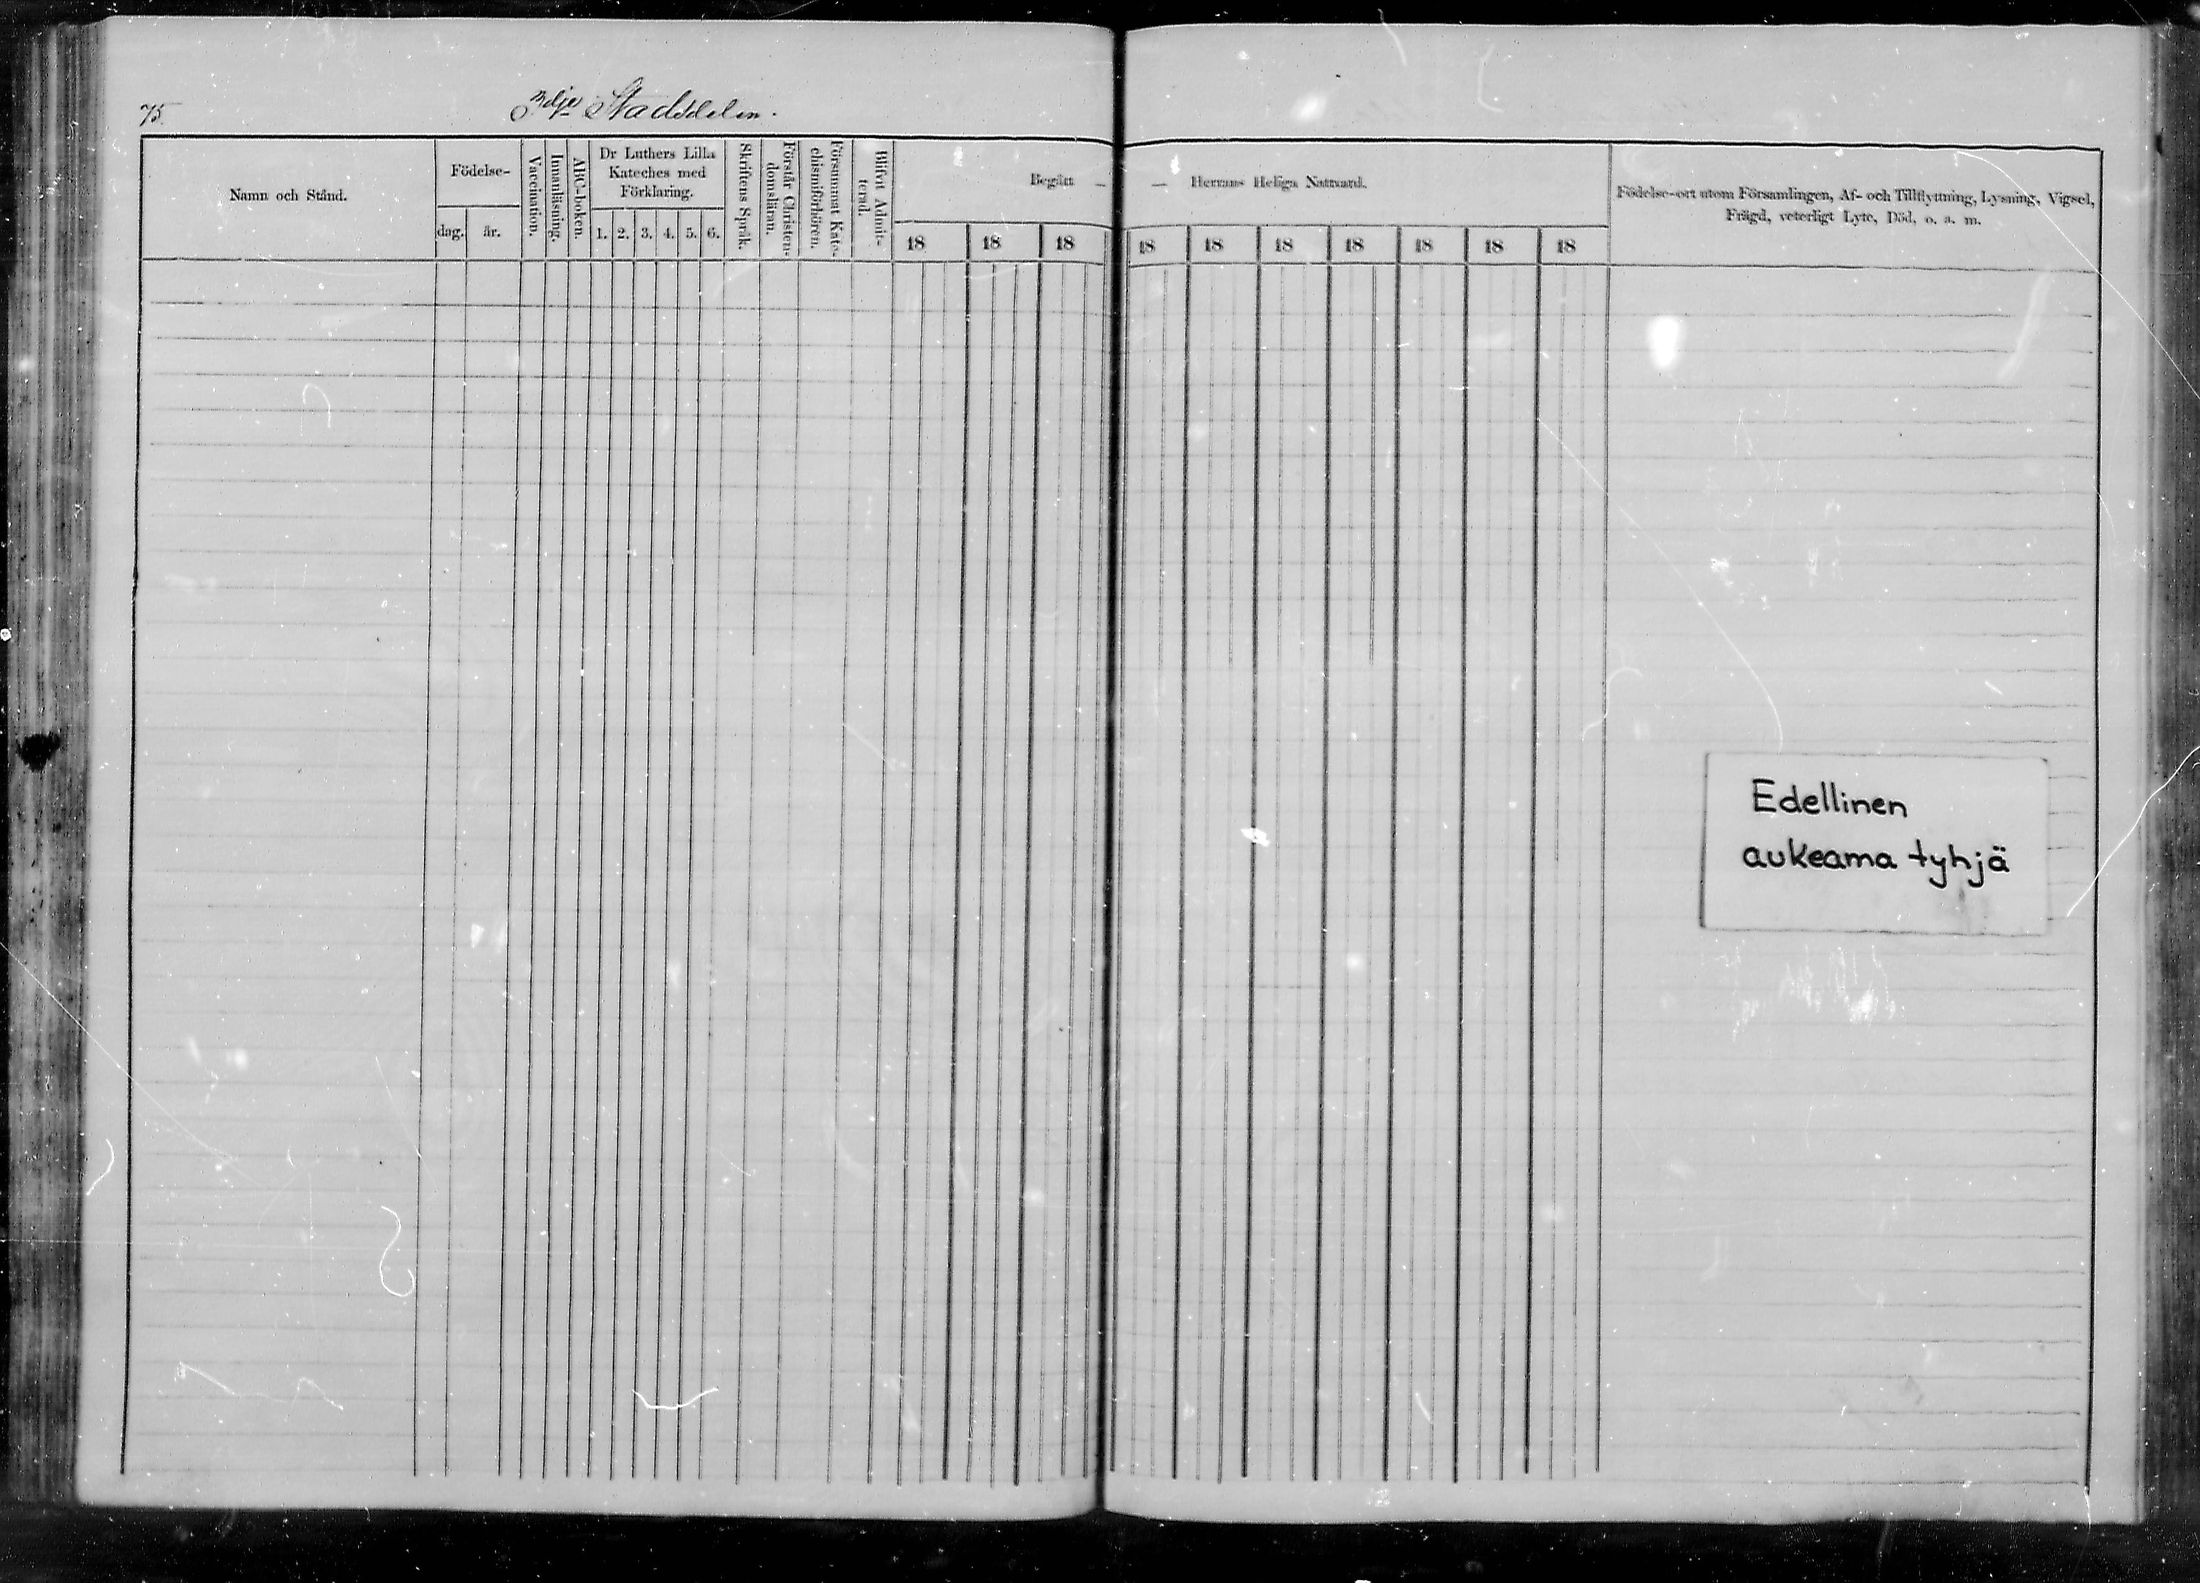 75.
3dje Stadsdelen.
Namn och Stånd.
Födelse-
dag.
år.
Vaccination.
Innanläsning.
ABC-boken.
Dr Luthers Lilla
Kateches med
Förklaring.
1. 2. 3. 4. 5. 6.
Skriftens Språk.
Förstår Christen-
domsläran.
Försummat Kate-
chismiförhören.
Blifvit Admit-
terad.
Begått — — Herrans Heliga Nattvard.
18 18 18 18 18 18 18 18 18 18
Födelse-ort utom Församlingen, Af- och Tillflyttning, Lysning, Vigsel,
Frägd, veterligt Lyte, Död, o. a. m.
Edellinen
aukeama tyhjä